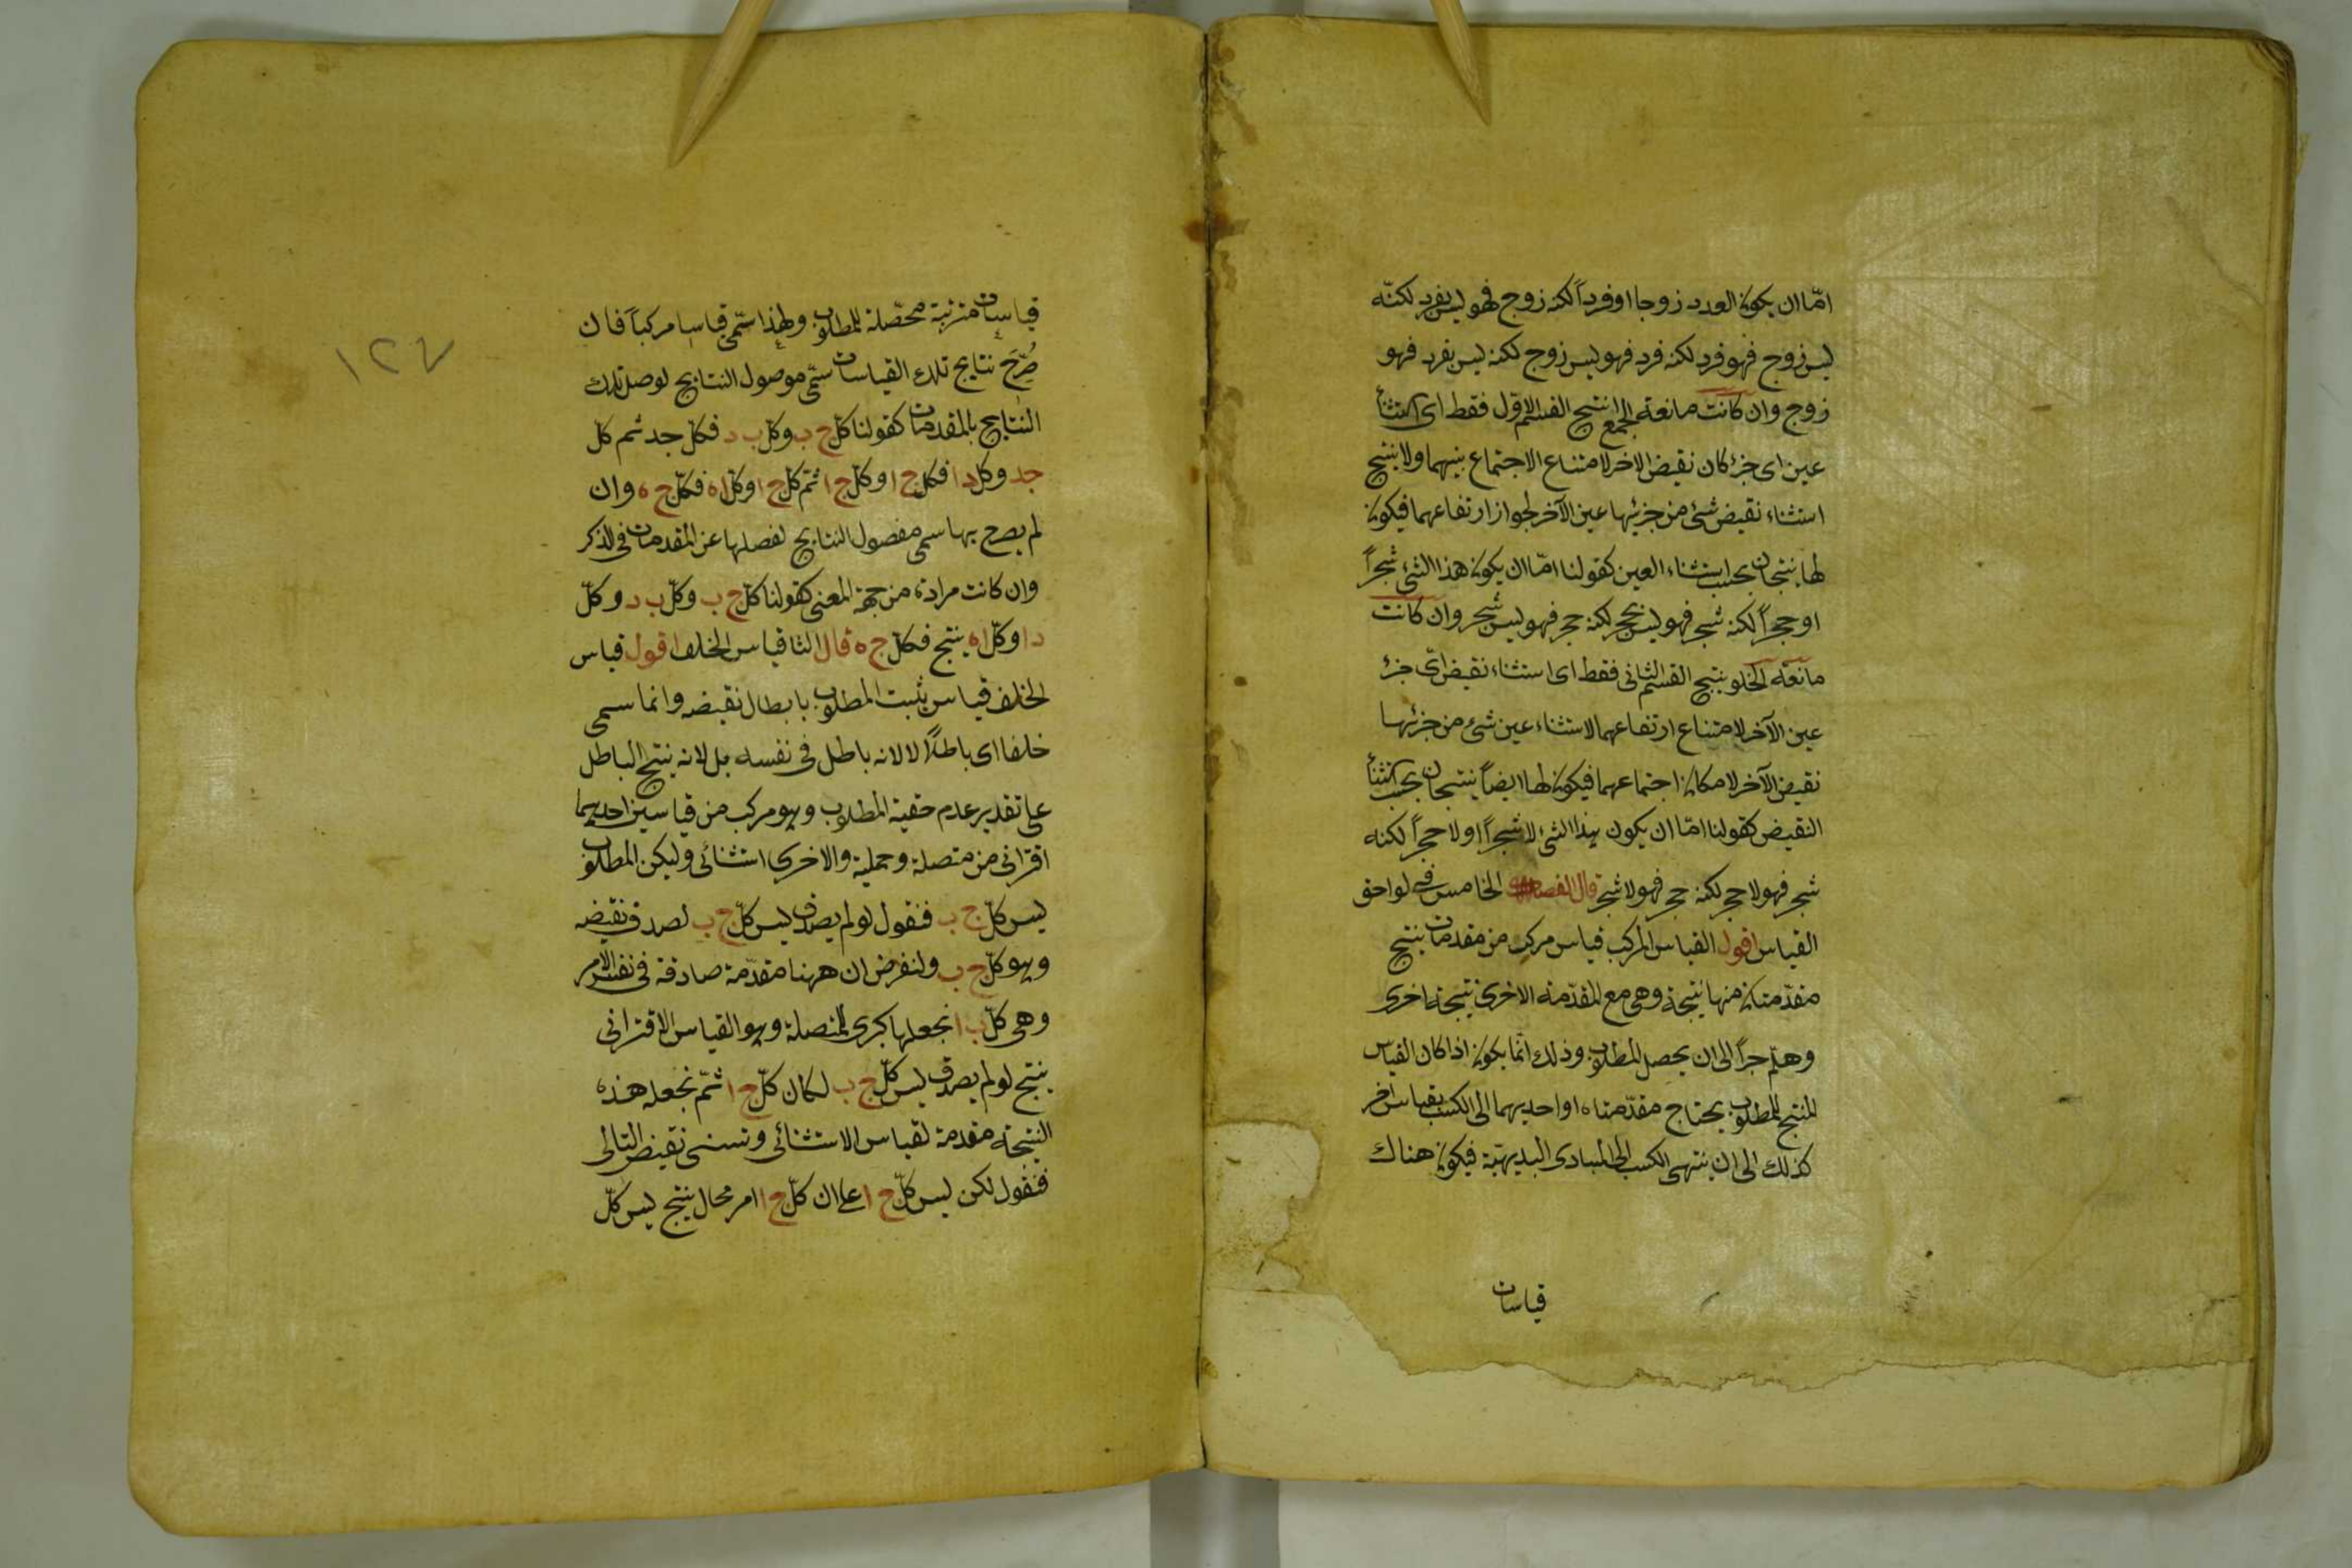 امّا ان يكون العدد زوجا او فرداً لكنه زوج فهو ليس بفرد لكنّه
ليس زوج فهو فرد لكنه فرد فهو ليس زوج لكنه ليس بفرد فهو
زوج وان كانت مانعة الجمع انتج القسم الاوّل فقط اى استثناء
عين اى جزء كان نقيض الاخر لامتناع الاجتماع بينهما ولا ينتج
استثناء نقيض شئ من جزئيها عين الآخر لجواز ارتفاعهما فيكون
لها نتيجتان بحسب استثناء العين كقولنا امّا ان يكون هذا الشئ شجراً
او حجراً لكنه شجر فهو ليس بحجر لكنه حجر فهو ليس شجر وان كانت
مانعة الخلو ينتج القسم الثانى فقط اى استثناء نقيض اىّ جزء
عين الآخر لامتناع ارتفاعهما لاستثناء عين شئ من جزئيها
نقيض الآخر لامكان اجتماعهما فيكون لها ايضاً نتيجتان بحسب استثناء
النقيض كقولنا امّا ان يكون هذا الشئ لا شجراً او لا حجراً لكنه
شجر فهو لا حجر لكنه حجر فهو لا شجر قال الفصل الخامس فى لواحق
القياس اقول القياس المركب قياس مركب من مقدمات ينتج
مقدّمتان منها نتيجة وهى مع المقدّمة الاخرى نتيجة اخرى
وهلّم جراً الى ان يحصل المطلوب وذلك انّما يكون اذا كان القياس
المنتج للمطلوب يحتاج مقدّمتاه او احديهما الى الكسب بقياس آخر
كذلك الى ان ينتهى الكسب الى المبادى البديهيّة فيكون هناك
قياسات
١٢٤
قياسات مترتبة محصّلة للمطلوب ولهذا سمّى قياسا مركباً فان
صُرِّحَ نتايج تلك القياسات سمّى موصول النتايج لوصل تلك
النتايج بالمقدمات كقولنا كلّ ج ب وكلّ ب د فكلّ جد ثم كلّ
جد وكل د ا فكل ج ا وكلّ ج ا ثمّ كلّ ج ا وكلّ ا ه فكلّ ج ه وان
لم يصرح بها سمى مفصول النتايج لفصلها عن المقدمات فى الذكر
وان كانت مرادة من جهة المعنى كقولنا كلّ ج ب وكلّ ب د وكلّ
د ا وكلّ ا ه ينتج فكلّ ج ه قال الثا قياس الخلف اقول قياس
الخلف قياس يثبت المطلوب بابطال نقيضه وانما سمى
خلفا اى باطلاً لا لانه باطل فى نفسه بل لانه ينتج الباطل
على تقدير عدم حقية المطلوب وهو مركب من قياسين احديهما
اقترانى من متصلة وحملية والاخرى استثنائى وليكن المطلوب
ليس كلّ ج ب فنقول لو لم يصدق ليس كلّ ج ب لصدق نقيضه
وهو كلّ ج ب ولنفرض ان ههنا مقدّمة صادقة فى نفس الامر
وهى كلّ ب ا نجعلها كبرى للمتصلة وهو القياس الاقترانى
ينتج لو لم يصدق ليس كلّ ج ب لكان كلّ ج ا ثمّ نجعل هذه
النتيجة مقدمة لقياس الاستثنائى ونستثنى نقيض التالى
فنقول لكن ليس كلّ ج ا على ان كلّ ج ا امر محال ينتج ليس كلّ